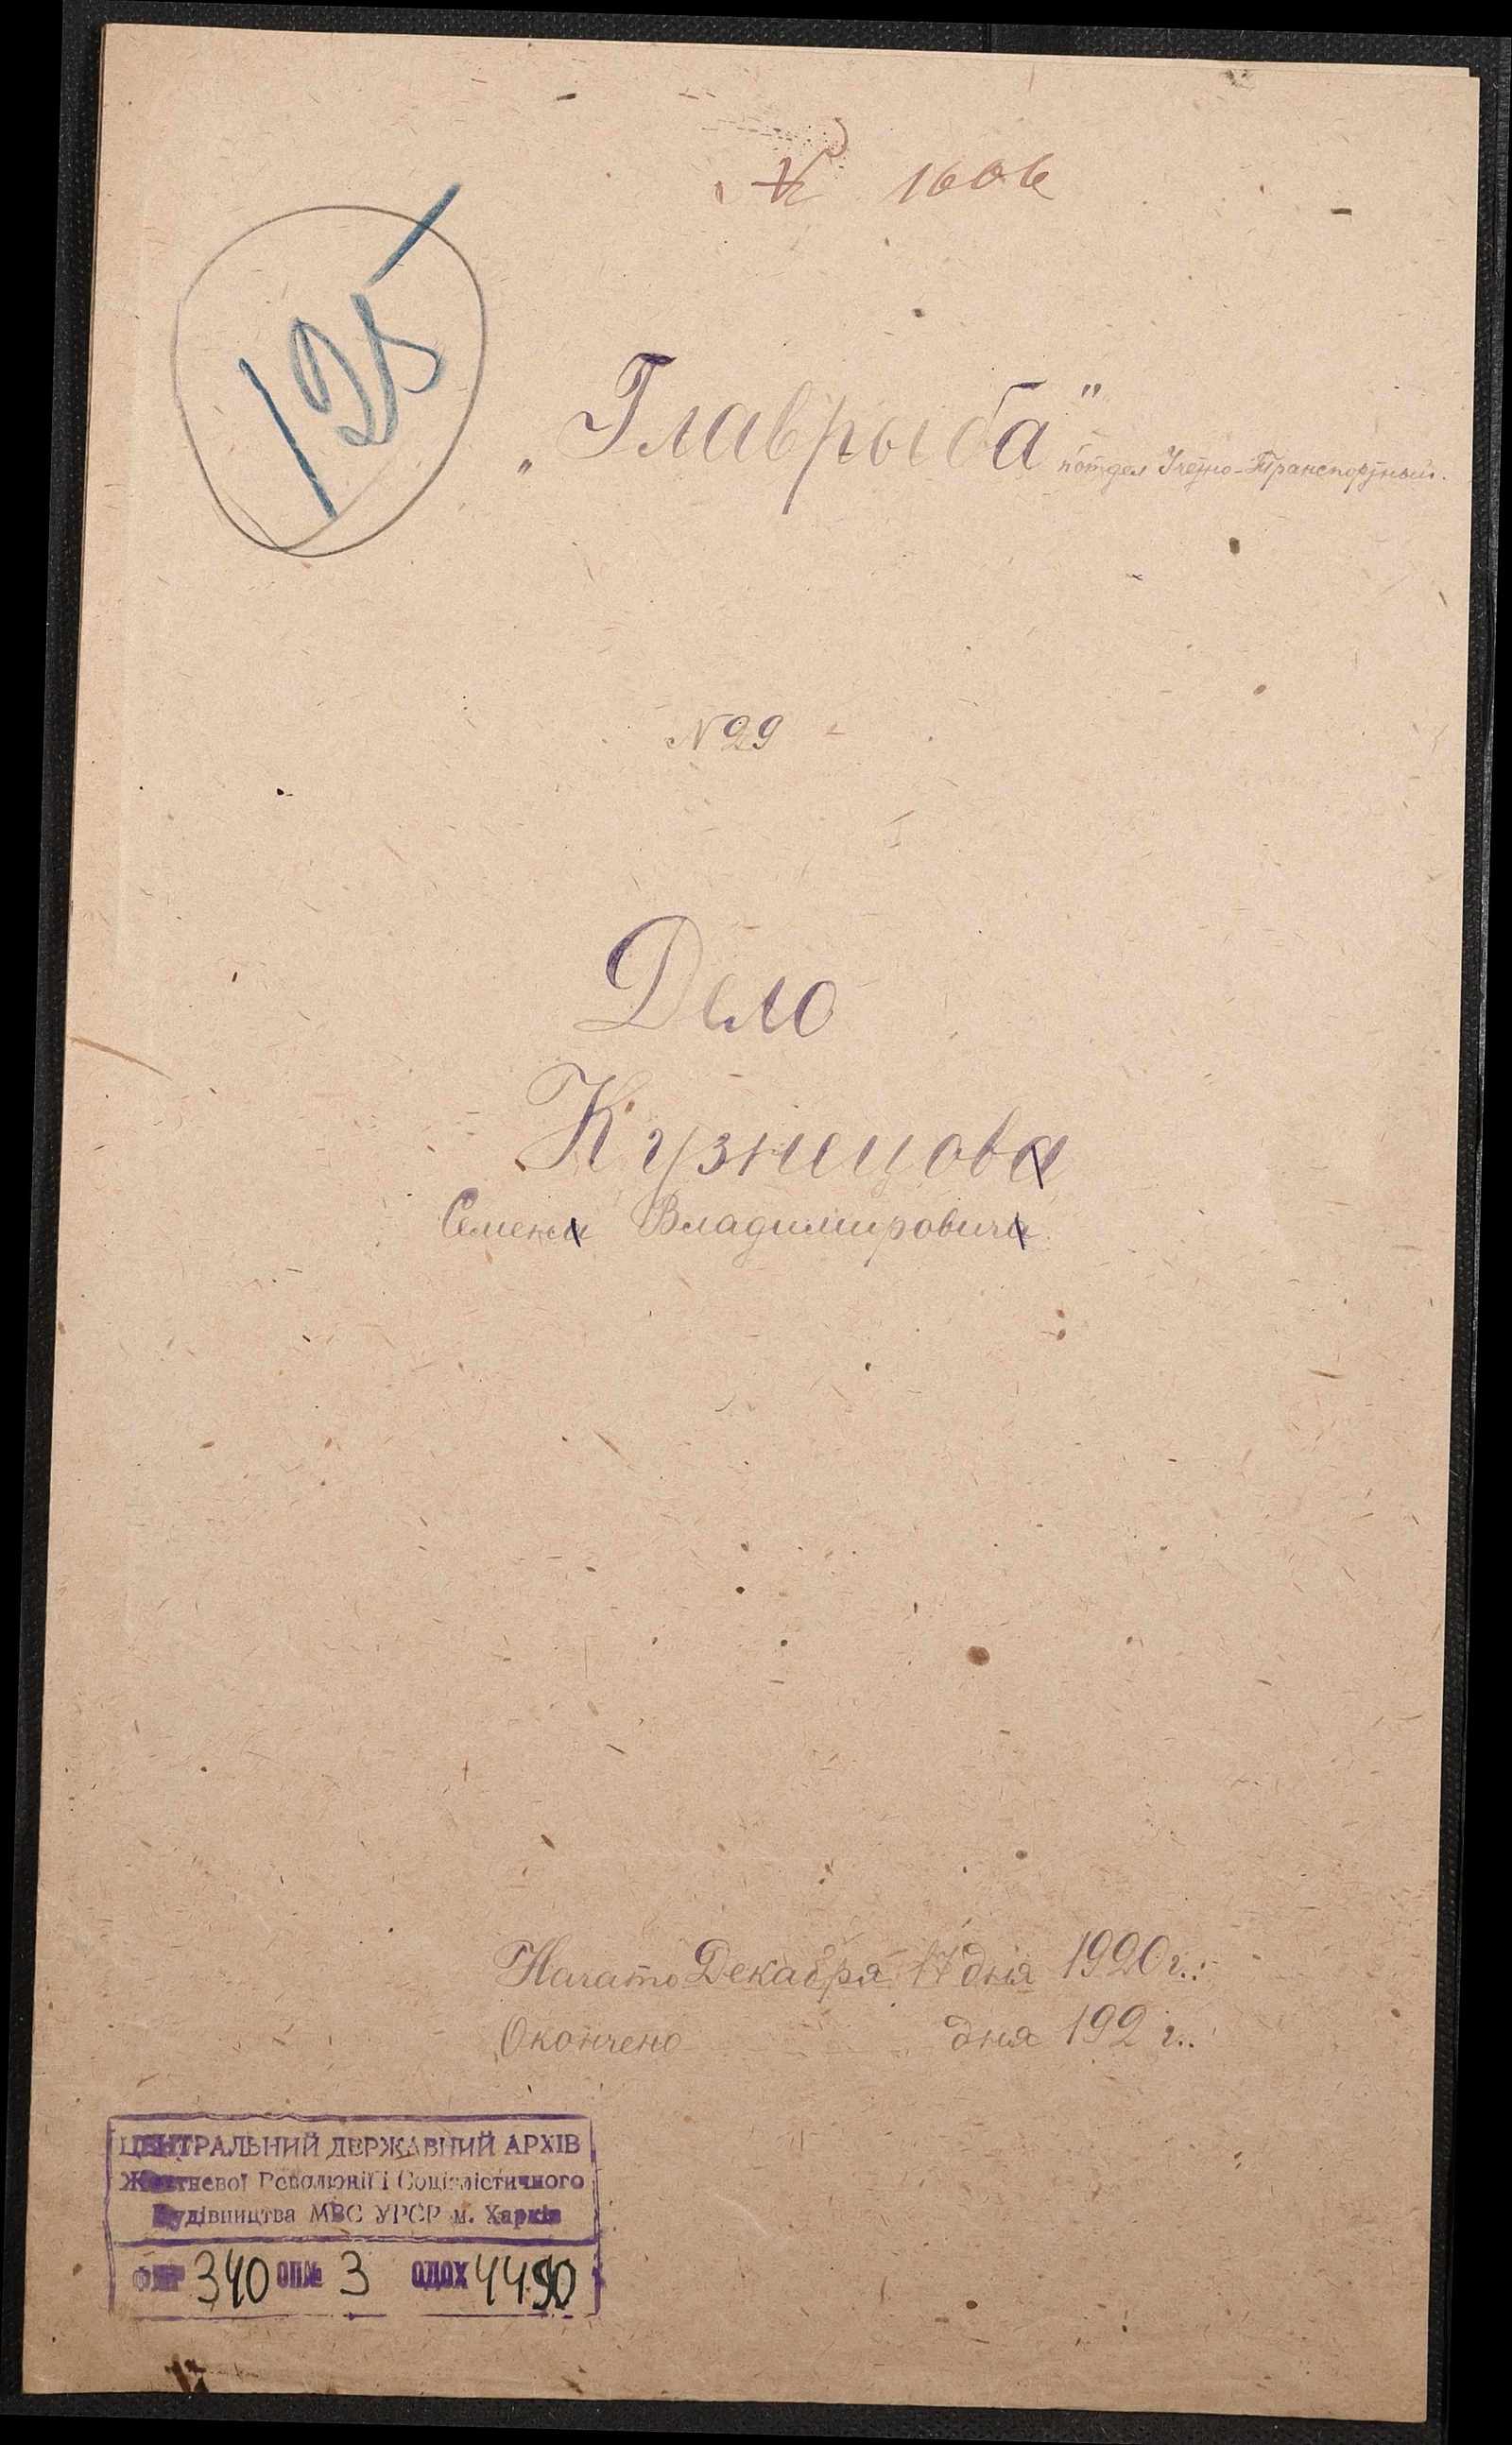 № 1606
125
„Главрыба" п/отдел Учетно-Транспортный.
N 29
Дело
Кузнецова
Семена Владимировича
Начато Декабря 17 дня 1920 г.
Окончено дня 192 г.
ЦЕНТРАЛЬНИЙ ДЕРЖАВНИЙ АРХІВ
Жовтневої Революції і Соціалістичного
Будівництва МВС УРСР м. Харків
340 ОП№ 3 ОДОХ 4490